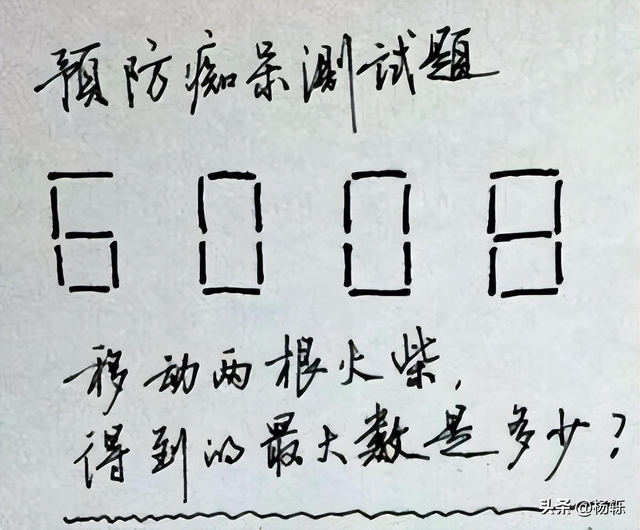 预防痴呆测试题
6008
移动两根火柴,
得到的最大数是多少?
头条@杨铄